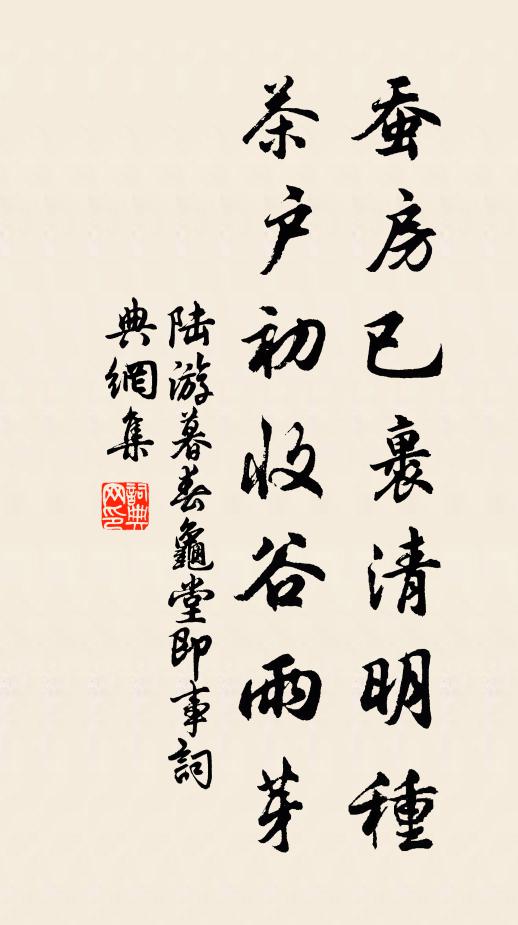 蚕房已裹清明種
茶户初收谷雨芽
陸游暮春龜堂即事詞
典網集
詞典网印